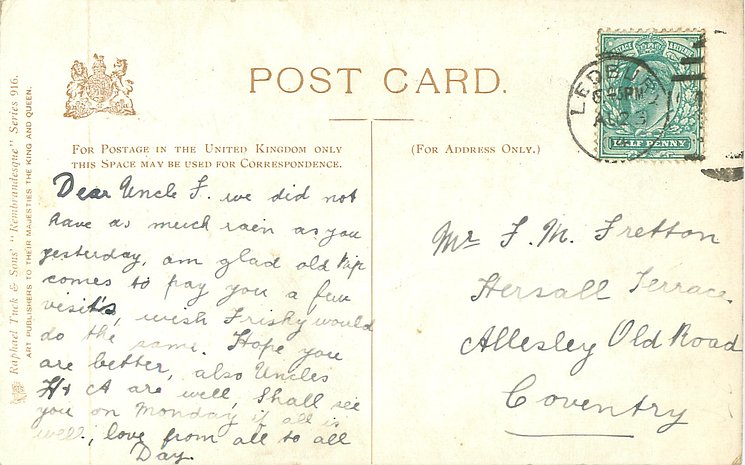 POST CARD.
FOR POSTAGE IN THE UNITED KINGDOM ONLY
THIS SPACE MAY BE USED FOR CORRESPONDENCE.
(FOR ADDRESS ONLY.)
Raphael Tuck & Sons' "Rembrandtesque" Series 916.
ART PUBLISHERS TO THEIR MAJESTIES THE KING AND QUEEN.
POSTAGE & REVENUE
HALF PENNY
LEDBURY
AU 23
Dear Uncle F. we did not
have as much rain as you
yesterday, am glad old Pip
comes to pay you a few
visits, wish Frisky would
do the same. Hope you
are better, also Uncles
H + A are well, Shall see
you on Monday if all is
well, love from all to all
Day
Mr F. M. Fretton
Hersall Terrace
Allesley Old Road
Coventry